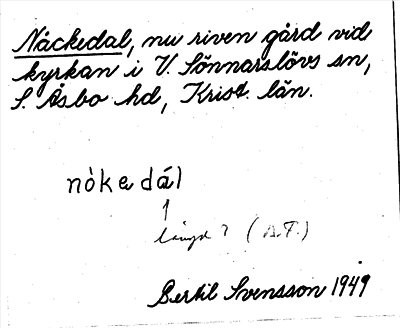 Nåckedal, nu riven gård vid
kyrkan i V. Sönnarslövs sn,
S. Åsbo hd, Krist. län.
nòkedál
↑
längd? (A.T.)
Bertil Svensson 1949